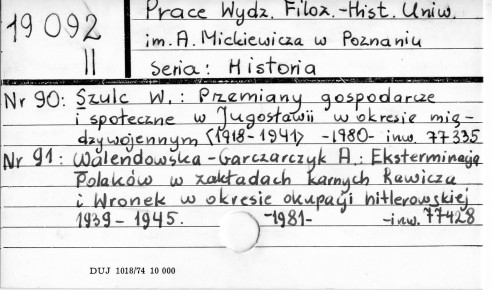 19092
II
Prace Wydz. Filoz.-Hist. Uniw.
im. A. Mickiewicza w Poznaniu
Seria: Historia
Nr 90: Szulc W.: Przemiany gospodarcze
i społeczne w Jugosławii w okresie mię-
dzywojennym <1918-1941> -1980- inw. 77335
Nr 91: Walendowska-Garczarczyk A.: Eksterminacja
Polaków w zakładach karnych Rawicza
i Wronek w okresie okupacji hitlerowskiej
1939-1945. -1981- -inw. 77428
DUJ 1018/74 10 000